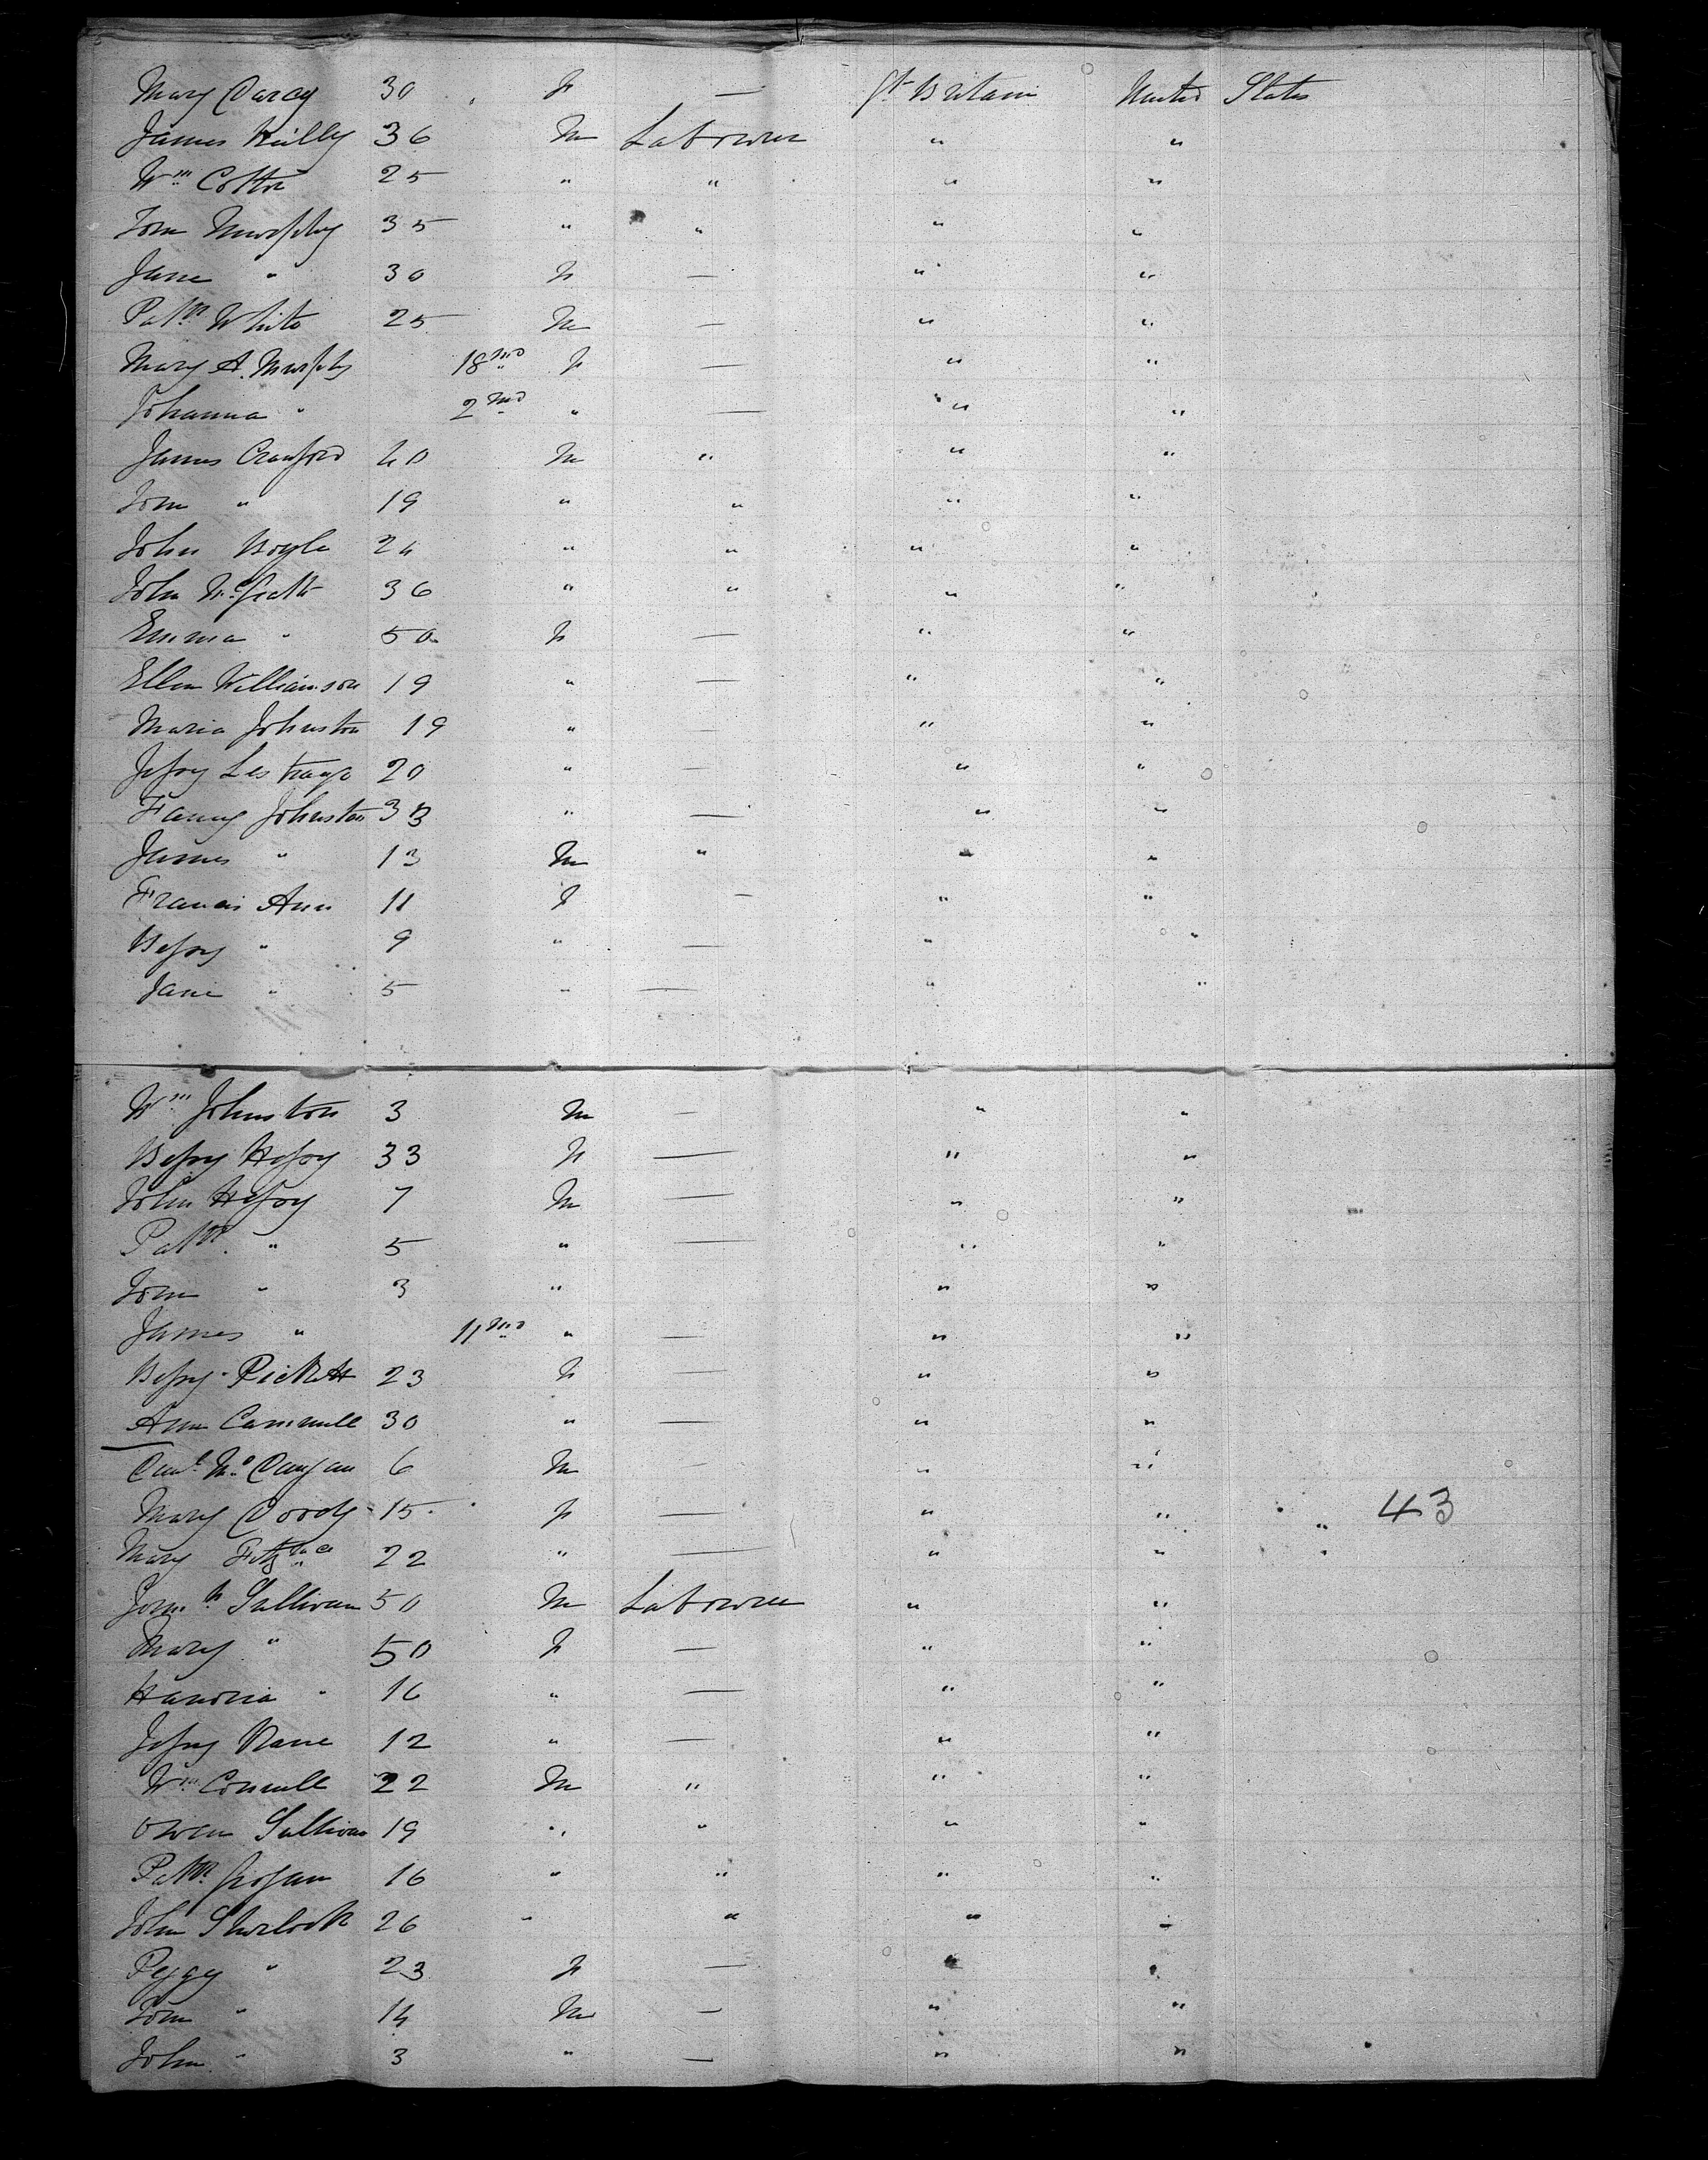 Mary Darcy 30 F — Gt Britain United States
James Reilly 36 M Labourer " "
Wm Cotton 25 " " " "
Tom Murphy 35 " " " "
Jane " 30 F — " "
Patk White 25 M — " "
Mary A. Murphy 18 mo F — " "
Johanna " 2 mo " — " "
James Crawford 40 M " " "
Tom " 19 " " " "
John Boyle 24 " " " "
John 36 " " " "
Emma " 50 F — " "
Ellen Williamson 19 " — " "
Maria Johnston 19 " — " "
Jessy Lestrange 20 " — " "
Fanny Johnston 33 " — " "
James " 13 M " " "
Francis Ann 11 F — " "
Bessy " 9 " — " "
Jane " 5 " — " "
Wm Johnston 3 M — " "
Bessy 33 F — " "
John 7 M — " "
Patk " 5 " — " "
Tom " 3 " " "
James " 11 mo " — " "
Bessy Pickett 23 F — " "
Ann Cammell 30 " — " "
Danl 6 M — " "
Mary Doody 15 F — " " "
43
Mary 22 " — " " "
Sullivan 50 M Labourer " "
Mary " 50 F — " "
Hanoria " 16 " — " "
Jessy Kane 12 " — " "
Wm Connell 22 M " " "
Owen Sullivan 19 " " " "
Patk Grogan 16 " " " "
John Shurlock 26 " " " "
Peggy " 23 F — " "
Tom " 14 M — " "
John " 3 " — " "